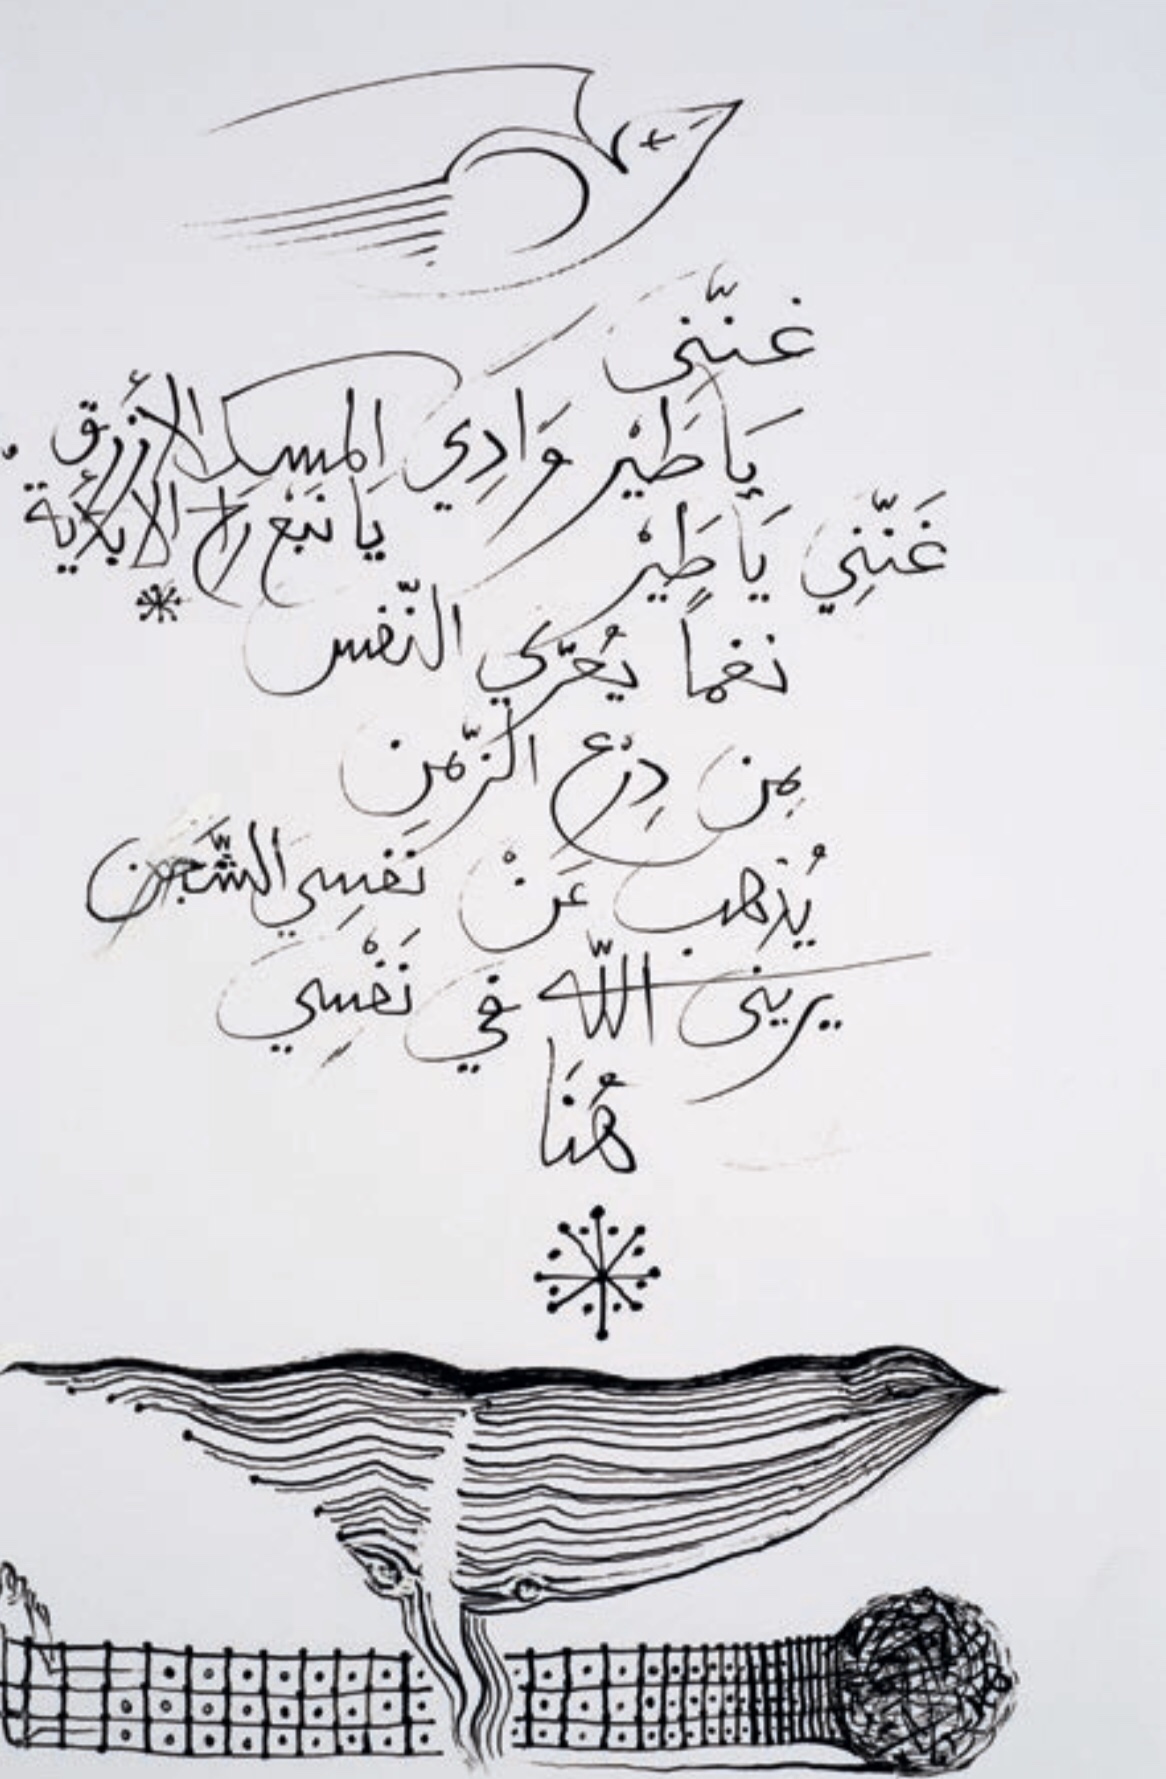 غنّني
يَا طَيْر وَادِي المسك الأزرق
غَنّنِي يَا طَيْر يَا نَبْع راح الأبدية
نغماً يُعرّي النّفس
مِن دِرْع الزّمن
يُذهب عَنْ نَفسِي الشّجن
يريني اللّه في نَفْسِي
هُنَا